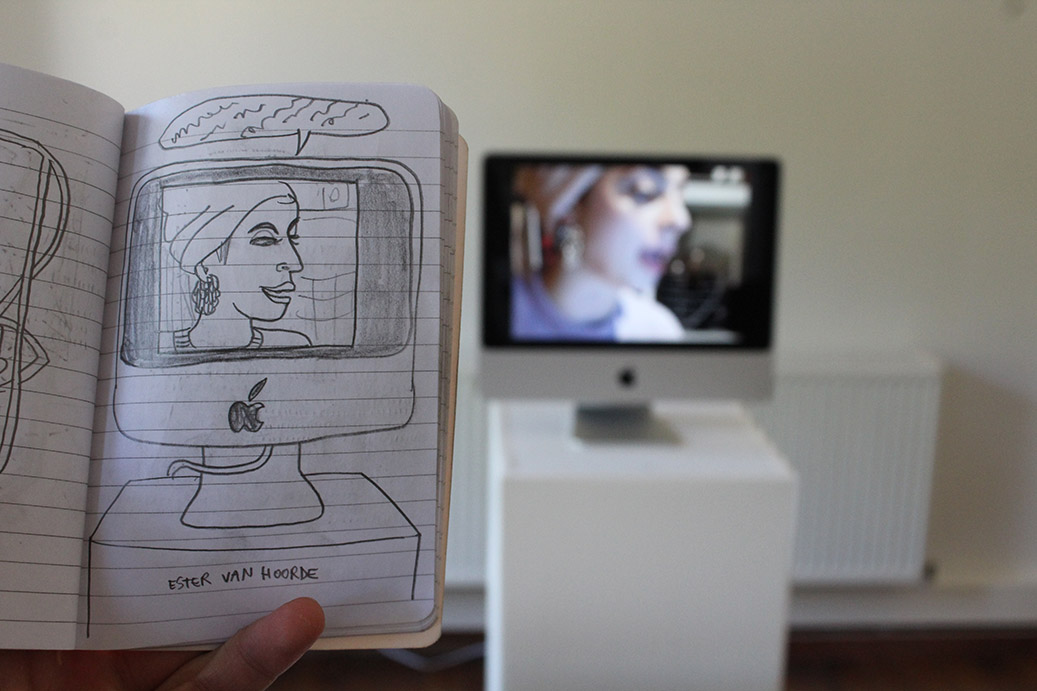 ESTER VAN HOORDE